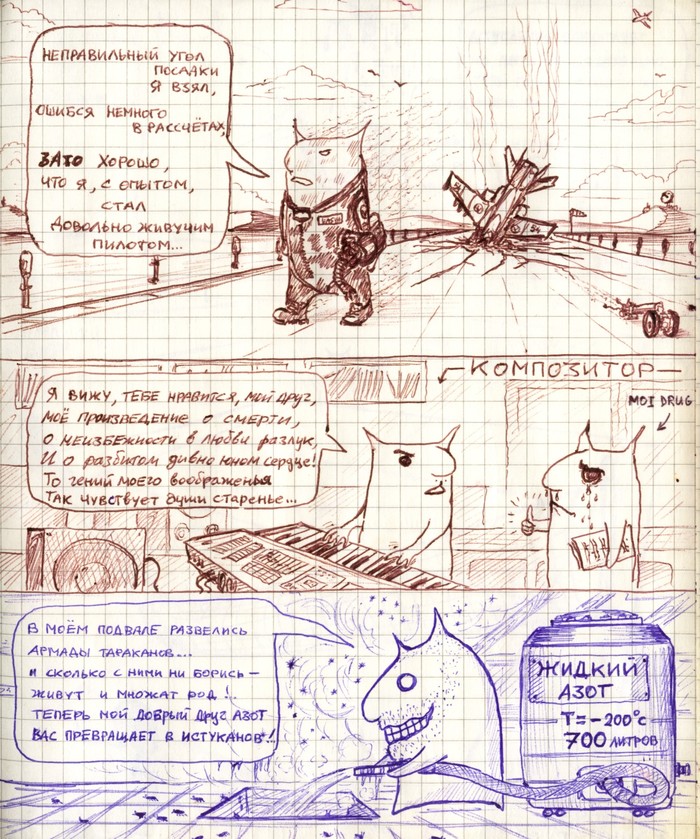 НЕПРАВИЛЬНЫЙ УГОЛ
ПОСААКИ
Я ВЗЯЛ,
ОШИБСЯ НЕМНОГО
В РАССЧЁТАХ,
ЗАТО ХОРОШО,
ЧТО Я, С ОПЫТОМ,
СТАЛ
ДОВОЛЬНО ЖИВУЧИМ
ПИЛОТОМ...
КОМПОЗИТОР
MOI DRUG
Я ВИЖУ, ТЕБЕ НРАВИТСЯ, МОЙ ДРУГ,
МОЁ ПРОИЗВЕДЕНИЕ О СМЕРТИ,
О НЕИЗБЕЖНОСТИ В ЛЮБВИ РАЗЛУК,
И О РАЗБИТОМ ДИВНО ЮНОМ СЕРДЦЕ!
ТО ГЕНИЙ МОЕГО ВООБРАЖЕНЬЯ
ТАК ЧУВСТВУЕТ ДУШИ СТАРЕНЬЕ...
В МОЁМ ПОДВАЛЕ РАЗВЕЛИСЬ
АРМАДЫ ТАРАКАНОВ...
И СКОЛЬКО С НИМИ НИ БОРИСЬ —
ЖИВУТ И МНОЖАТ РОД!
ТЕПЕРЬ МОЙ ДОБРЫЙ ДРУГ АЗОТ
ВАС ПРЕВРАЩАЕТ В ИСТУКАНОВ!
ЖИДКИЙ
АЗОТ
T=-200°C
700 ЛИТРОВ